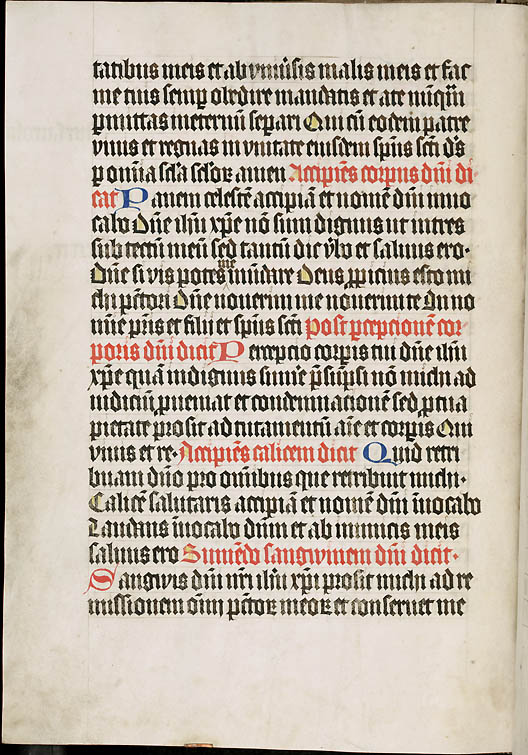 tatibus meis et ab vniūsis malis meis et fac
me tuis semp obedire mandatis et a te nūqm̄
pmittas ineternū separi Qui cū eodem patre
viuis et regnas in vnitate eiusdem spūs scī ds̄
p omīa scl̄a scl̄oꝝ amen Accipiēs corpus dnī di
cat Panem celestē accipiā et nomē dnī inuo
cabo Dn̄e ih̄u xp̄e nō sum dignus ut intres
sub tectū meū sed tantū dic v̄bo et saluus ero·
Dn̄e si vis potes me mūdare Deus ꝓpicius esto mi
chi pc̄tori Dn̄e nouerim me nouerim te In no
mīe prīs et filij et spūs scī post percepcionē cor
poris dnī dicit Percepcio corpris tui dn̄e ih̄u
xp̄e quā indignus sumē p̄sūpsi nō michi ad
iudiciū ꝓueniat et condempnacionē sed ꝓ tua
pietate prosit ad tutamentū aīe et corpris Qui
viuis et re· Accipiēs calicem dicit Quid retri
buam dn̄o pro omībus que retribuit michi·
Calicē salutaris accipiā et nomē dnī īuocabo
Laudans īuocabo dnm̄ et ab inimicis meis
saluus ero Sumēdo sangwinem dnī dicit·
Sangwis dnī nrī ih̄u xp̄i prosit michi ad re
missionem oīm pc̄toꝝ meoꝝ et conseruet me